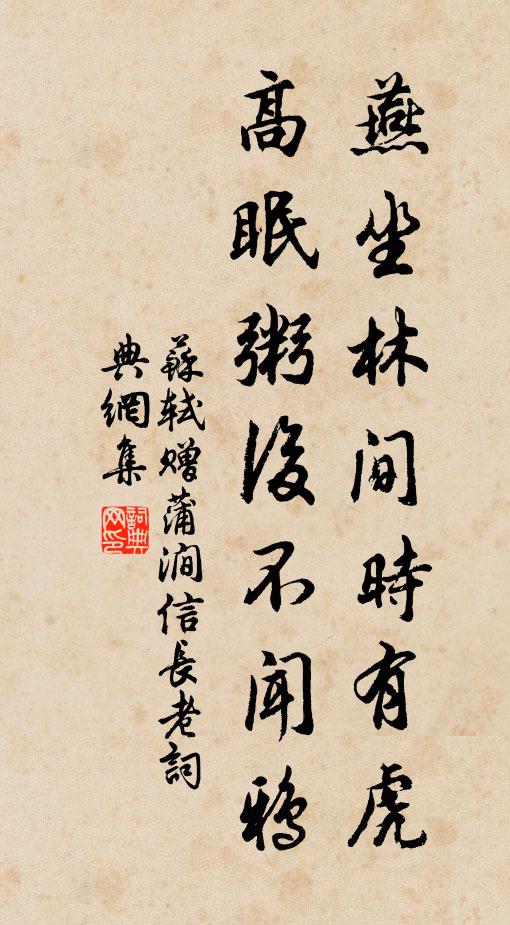 燕坐林間時有虎
高眠粥後不聞鴉
蘇軾贈蒲澗信長老詞
典網集
詞典網印